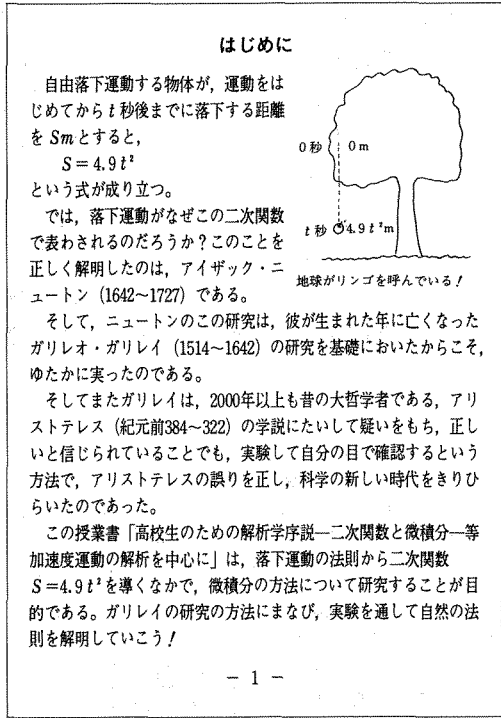 はじめに
自由落下運動する物体が，運動をは
じめてからt秒後までに落下する距離
をSmとすると，
S＝4.9t²
という式が成り立つ。
では，落下運動がなぜこの二次関数
で表わされるのだろうか？このことを
正しく解明したのは，アイザック・ニ
ュートン（1642～1727）である。
0秒 0m
t秒 4.9t²m
地球がリンゴを呼んでいる！
そして，ニュートンのこの研究は，彼が生まれた年に亡くなった
ガリレオ・ガリレイ（1514～1642）の研究を基礎においたからこそ，
ゆたかに実ったのである。
そしてまたガリレイは，2000年以上も昔の大哲学者である，アリ
ストテレス（紀元前384～322）の学説にたいして疑いをもち，正し
いと信じられていることでも，実験して自分の目で確認するという
方法で，アリストテレスの誤りを正し，科学の新しい時代をきりひ
らいたのであった。
この授業書「高校生のための解析学序説―二次関数と微積分―等
加速度運動の解析を中心に」は，落下運動の法則から二次関数
S＝4.9t²を導くなかで，微積分の方法について研究することが目
的である。ガリレイの研究の方法にまなび，実験を通して自然の法
則を解明していこう！
－ 1 －